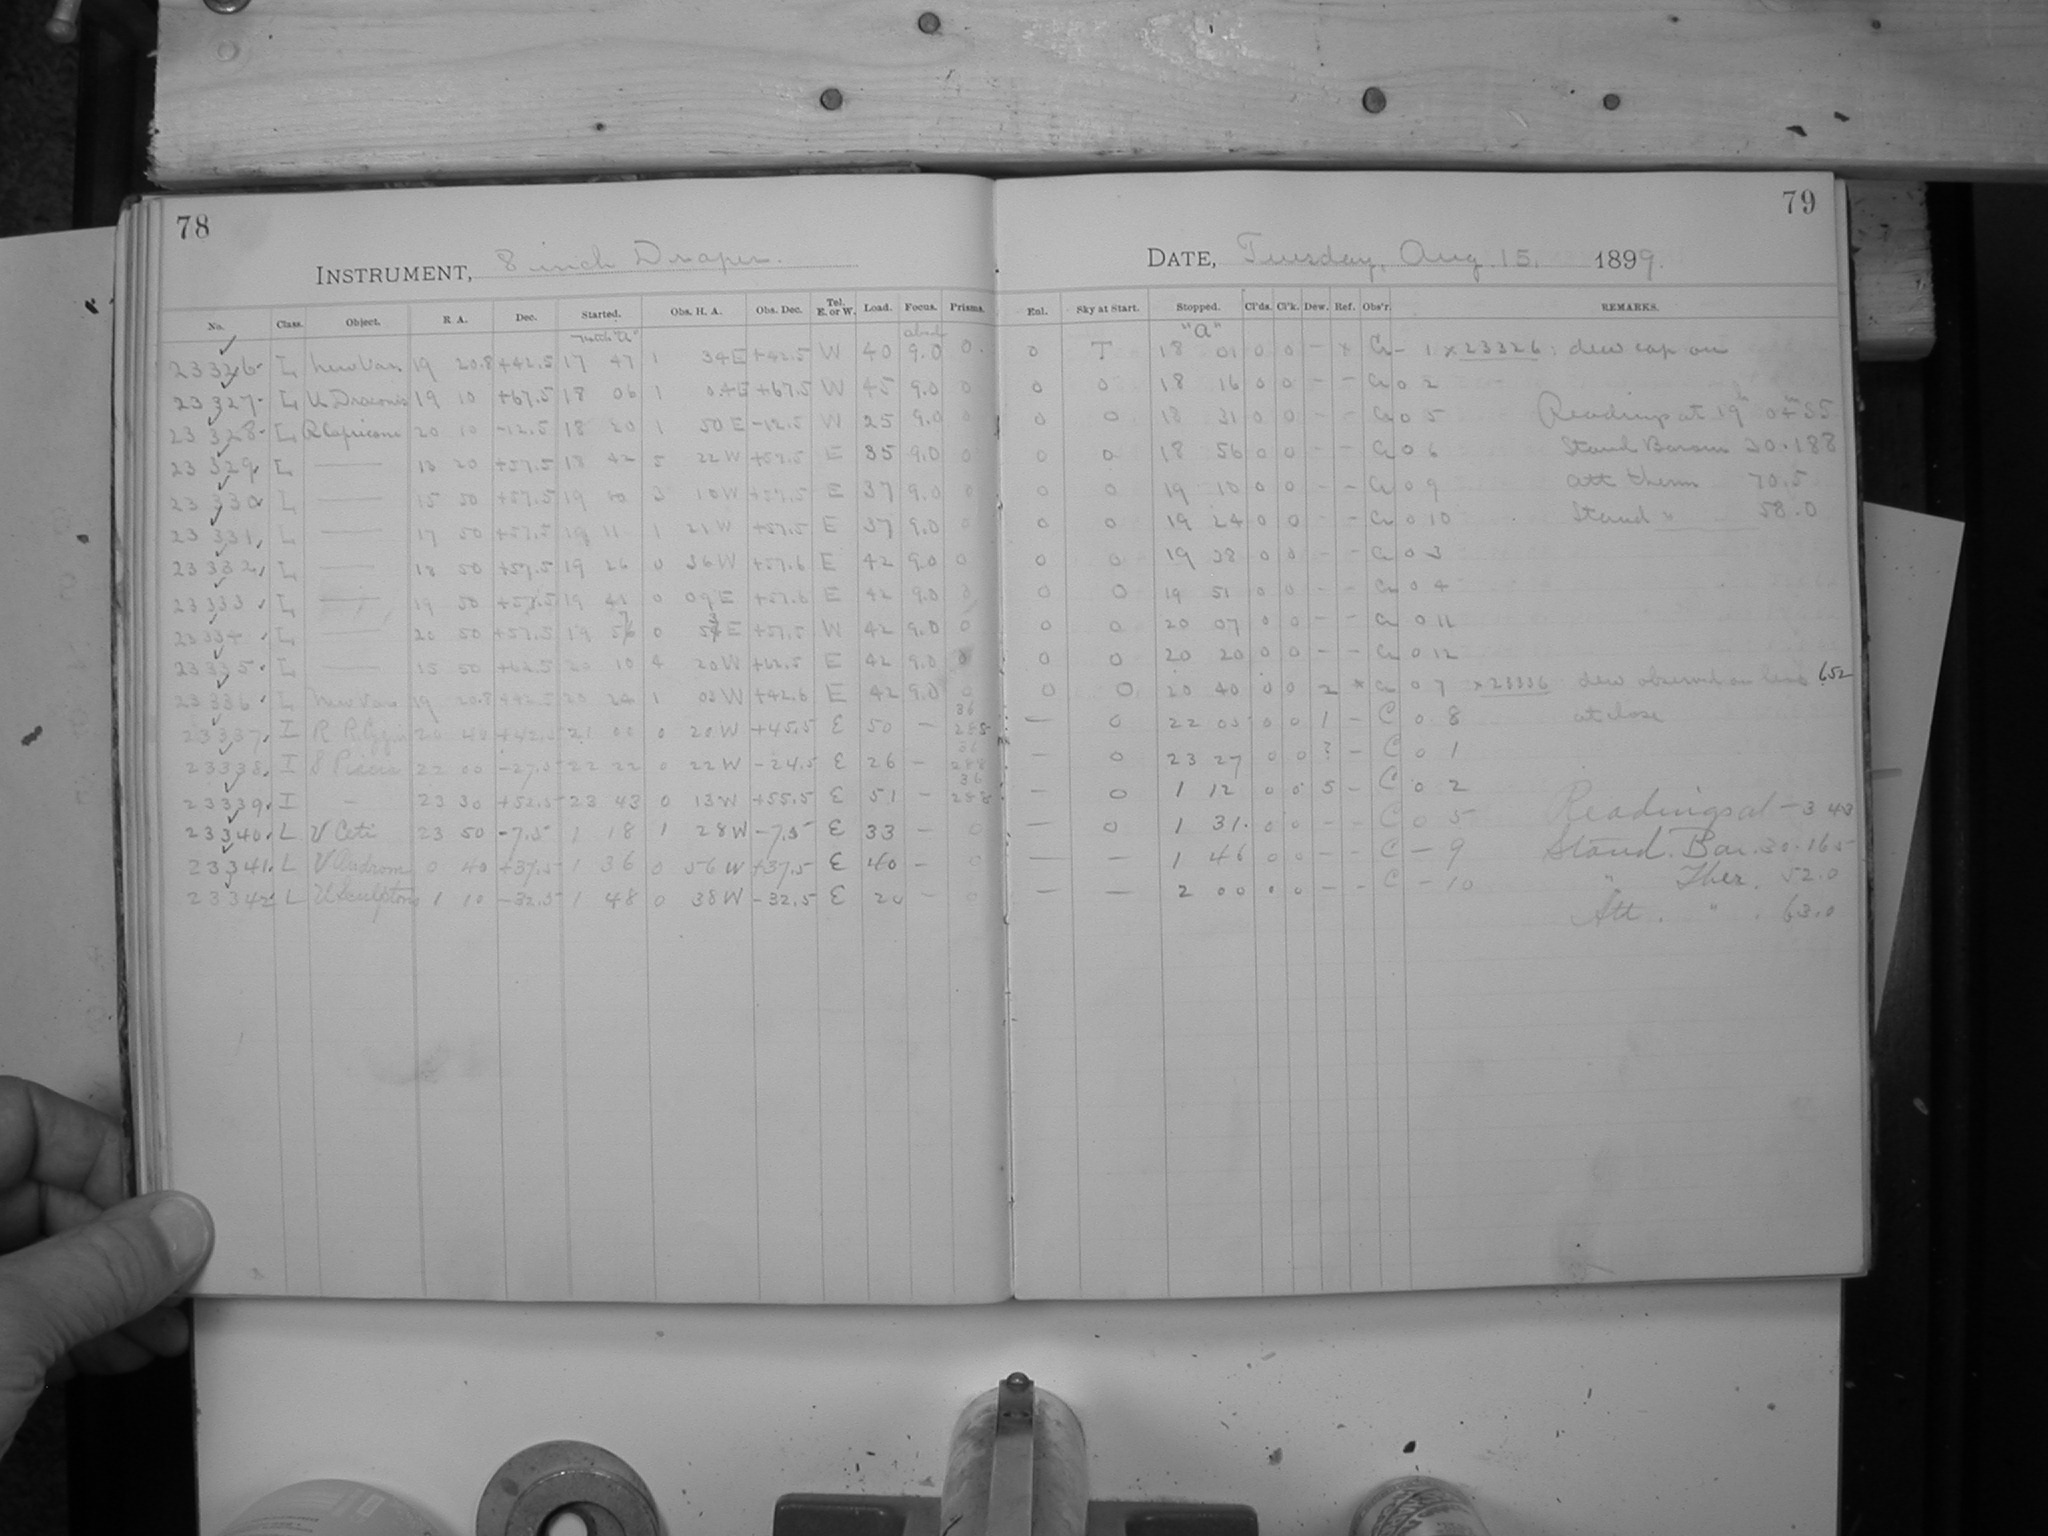 78
INSTRUMENT, 8 inch Draper.
No. Class. Object. R A. Dec. Started. Obs. H. A. Obs. Dec. Tel. E. or W. Load. Focus. Prisms.
23326 L New Var. 19 20.8 +42.5 17 47 1 34E +42.5 W 40 9.0 0.
23327 L U Draconis 19 10 +67.5 18 06 1 04E +67.5 W 45 9.0 0
23328 L R Capricorni 20 10 -12.5 18 20 1 50E -12.5 W 25 9.0 0
23329 L — 13 20 +57.5 18 42 5 22W +57.5 E 35 9.0 0
23330 L — 15 50 +57.5 19 3 10W +57.5 E 37 9.0 0
23331 L — 17 50 +57.5 19 11 1 21W +57.5 E 37 9.0 0
23332 L — 18 50 +57.5 19 26 0 36W +57.6 E 42 9.0 0
23333 L — 19 50 +57.5 19 41 0 09E +57.6 E 42 9.0 0
23334 L — 20 50 +57.5 19 0 +57.5 W 42 9.0 0
23335 L — 15 50 +62.5 20 10 4 20W +62.5 E 42 9.0 0
23336 L New Var. 19 20.8 +42.5 20 24 1 03W +42.6 E 42 9.0 0
23337 I 20 40 +42.5 21 00 0 20W +45.5 E 50 — 36 288
23338 I 22 00 -27.5 22 22 0 22W -24.5 E 26 — 36 288
23339 I — 23 30 +52.5 23 43 0 13W +55.5 E 51 — 36 288
23340 L V Ceti 23 50 -7.5 1 18 1 28W -7.5 E 33 — 0
23341 L V Androm 0 40 +37.5 1 36 0 56W +37.5 E 40 — 0
23342 L U Sculptoris 1 10 -32.5 1 48 0 38W -32.5 E 20 — 0
79
DATE, Tuesday, Aug. 15, 1899.
Enl. Sky at Start. Stopped. Cl'ds. Cl'k. Dew. Ref. Obs'r. REMARKS.
"a"
0 T 18 01 0 0 - x Cr - 1 x 23326: dew cap on
0 0 18 16 0 0 - - Cr 0 2
0 0 18 31 0 0 - - Cr 0 5 Readings at 19h 04m 55
0 0 18 56 0 0 - - Cr 0 6 Stand Barom 30.188
0 0 19 10 0 0 - - Cr 0 9 att therm 70.5
0 0 19 24 0 0 - - Cr 0 10 Stand " 58.0
0 0 19 38 0 0 - - Cr 0 3
0 0 19 51 0 0 - - Cr 0 4
0 0 20 07 0 0 - - Cr 0 11
0 0 20 20 0 0 - - Cr 0 12
0 0 20 40 0 0 2 x Cr 0 7 x 23336 dew observed on lens 652
— 0 22 00 0 0 1 - C 0 8 at close
— 0 23 27 0 0 ? - C 0 1
— 0 1 12 0 0 5 - C 0 2
— 0 1 31 0 0 - - C 0 5 Readings at - 3 43
— — 1 46 0 0 - - C - 9 Stand. Bar. 30.165
— — 2 00 0 0 - - C - 10 " Ther. 52.0
Att. " . 63.0